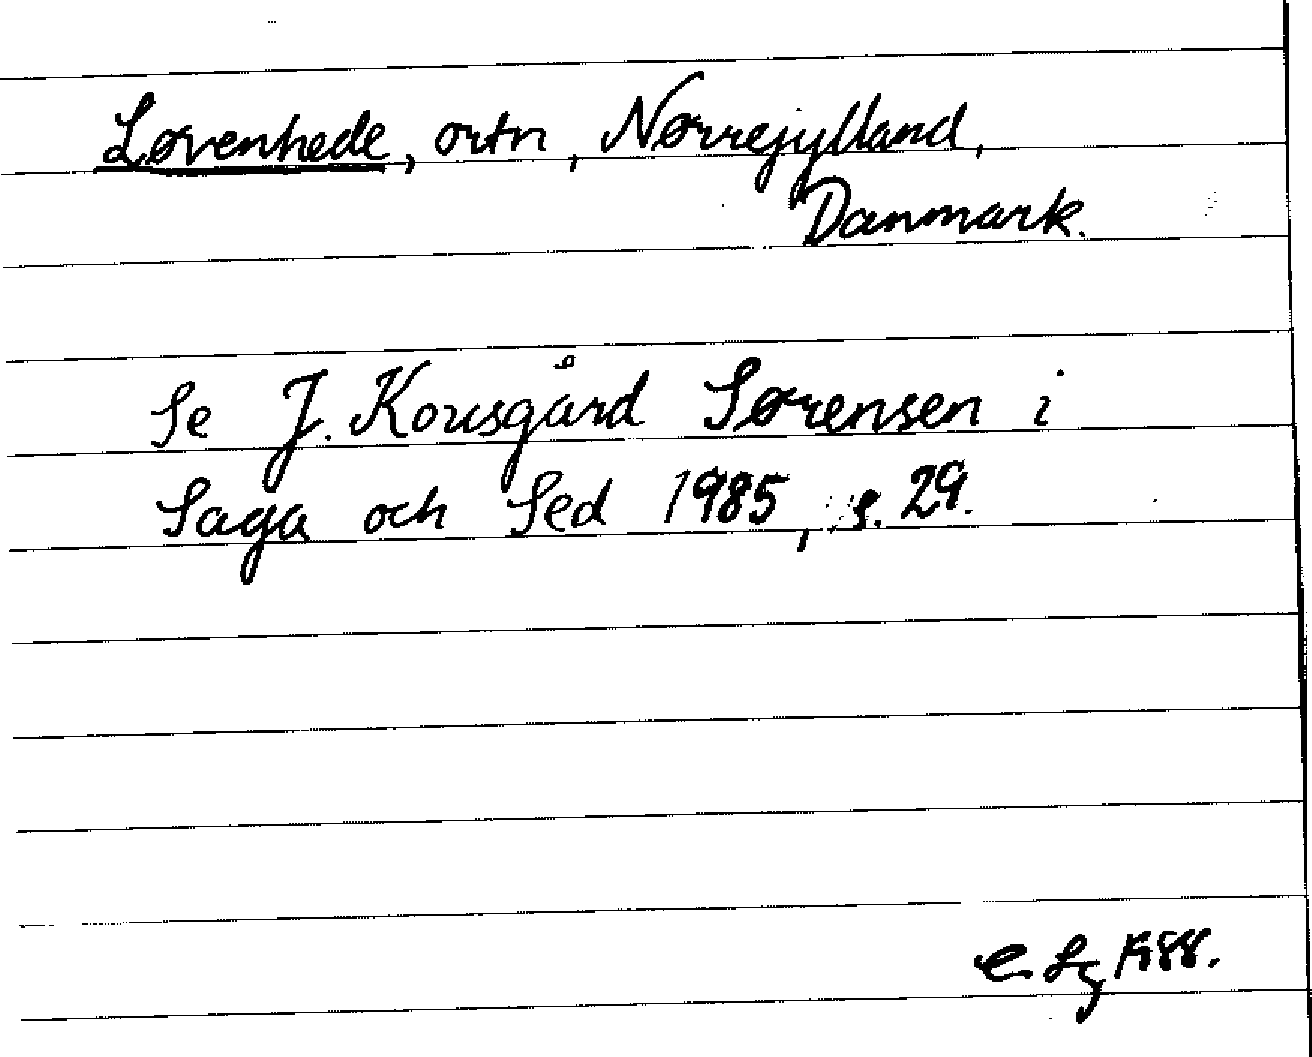 Løvenhede, ortn, Nørrejylland,
Danmark.
Se J. Kousgård Sørensen i
Saga och Sed 1985, s. 29.
1988.